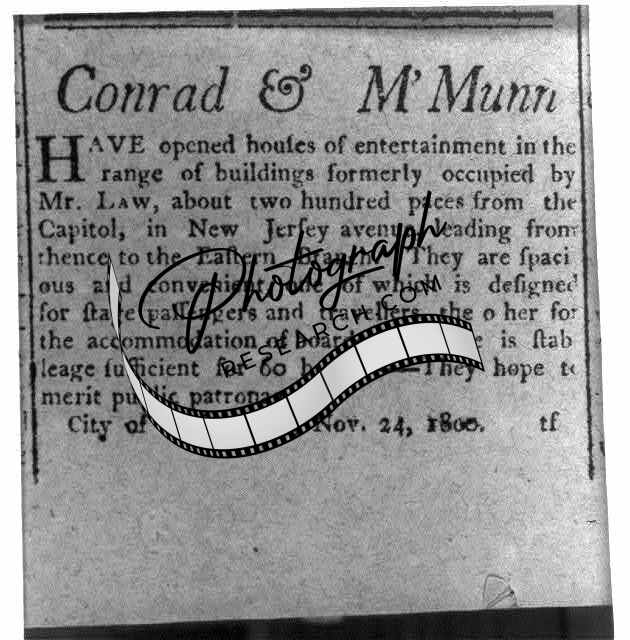 Conrad & M'Munn
HAVE opened houſes of entertainment in the
range of buildings formerly occupied by
Mr. LAW, about two hundred paces from the
Capitol, in New Jerſey avenue, leading from
thence to the Eaſtern Branch. They are ſpaci
ous and convenient, one of which is deſigned
for ſtage paſſengers and travellers, the o her for
the accommodation of boarders. is ſtab
leage ſufficient for 60 They hope to
merit public patronage.
City of Nov. 24, 1800. tf
Photograph
RESEARCH.COM